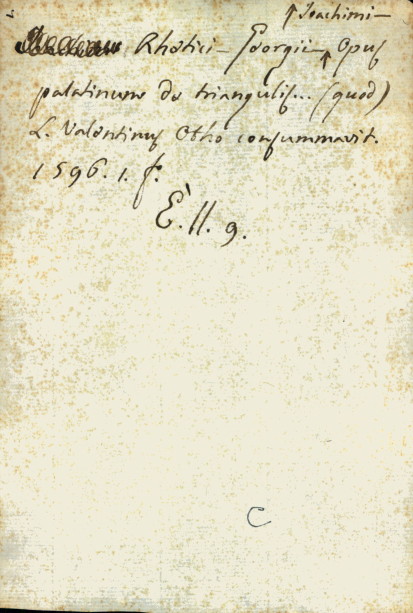 ↑ Joachimi—
Rhetici— Georgii— ↑ Opus
palatinum de triangulis... (quod)
L. Valentinus Otho consummavit.
1596. 1. f.
E. II. 9.
C